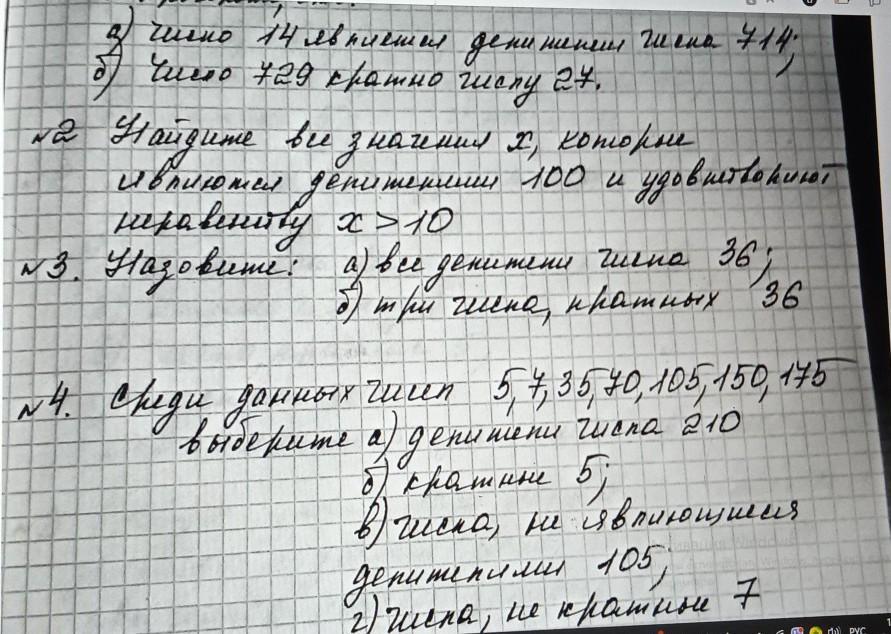 а) число 14 является делителем числа 714;
б) Число 729 кратно числу 27.
№2 Найдите все значения x, которые
являются делителями 100 и удовлетворяют
неравенству x > 10
№3. Назовите: а) все делители числа 36;
б) три числа, кратных 36
№4. Среди данных чисел 5, 7, 35, 70, 105, 150, 175
выберите а) делители числа 210
б) кратные 5;
в) числа, не являющиеся
делителями 105;
г) числа, не кратные 7
РУС